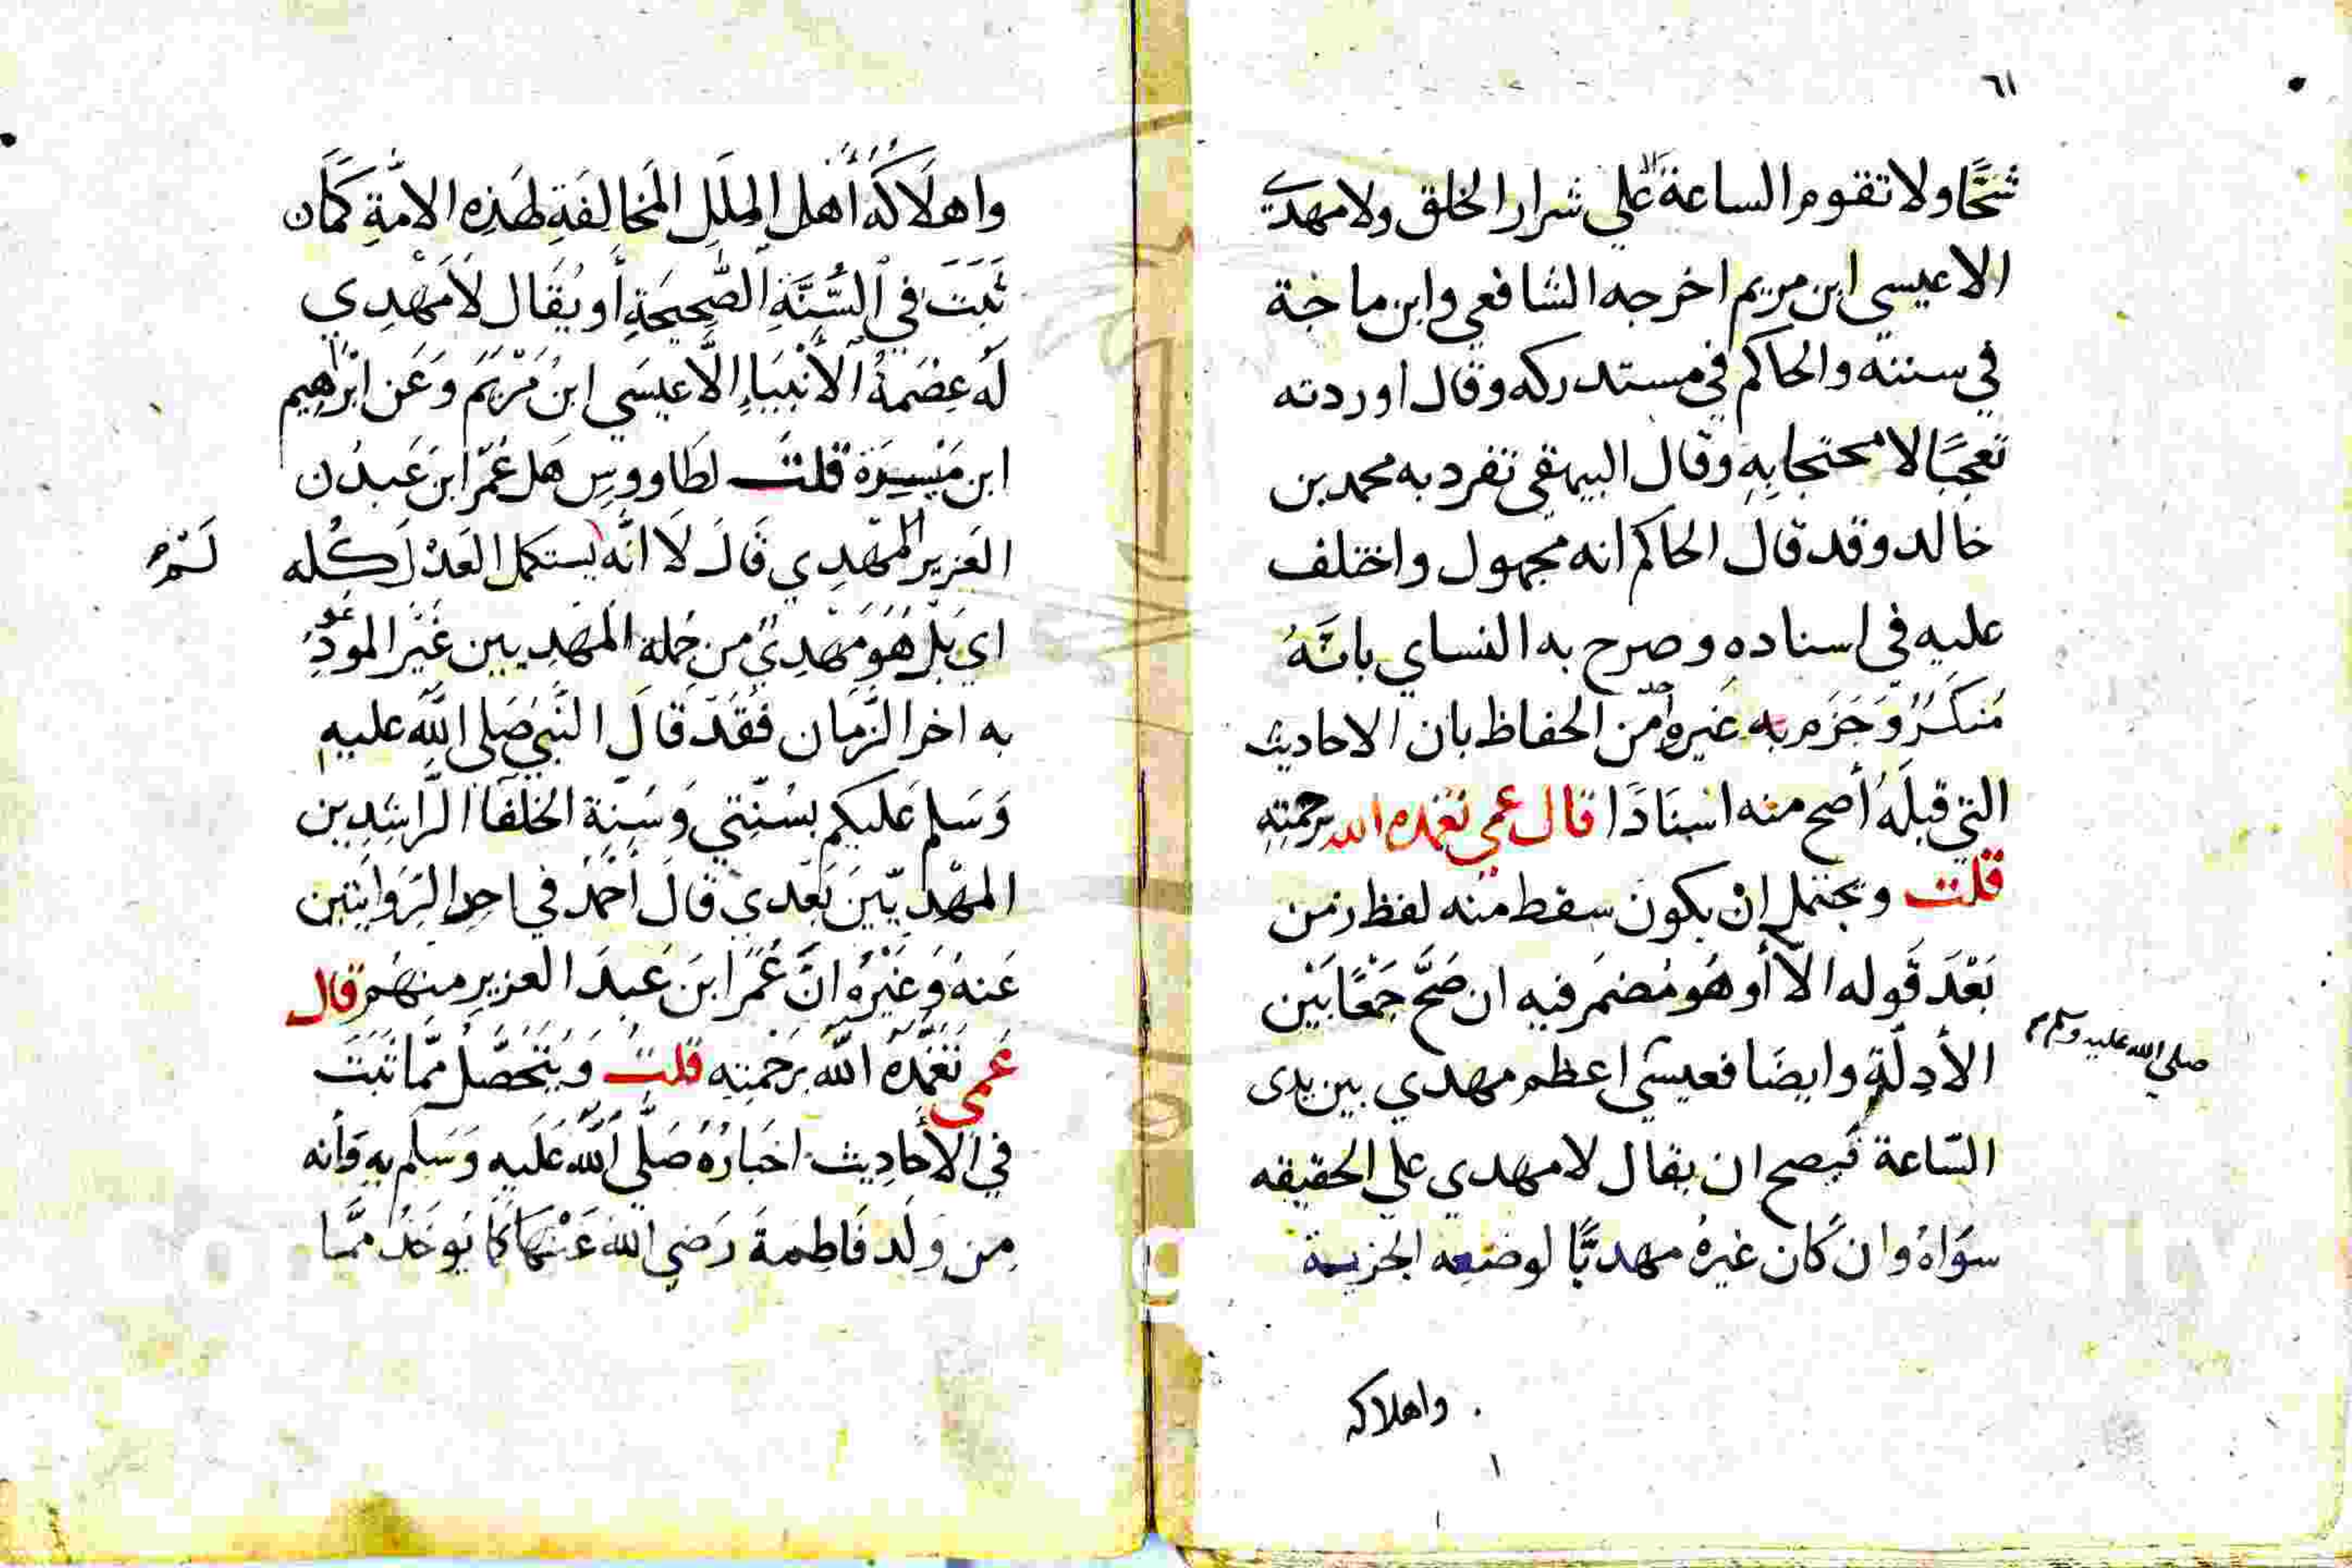 ٦١
شحًّا ولا تقوم الساعة الا علي شرار الخلق ولا مهدي
الا عيسي ابن مريم اخرجه الشافعي وابن ماجة
في سننه والحاكم في مستدركه وقال اوردته
تعجبًا لا محتجا بِهِ وقال البيهقي تفرد به محمد بن
خالد وقد قال الحاكم انه مجهول واختلف
عليه في اسناده وصرح به النساي بانَّهُ
مُنكَرٌ وَجَزَم به غيره من الحفاظ بان الاحاديث
التي قبلَهُ أصح منه اسنَادًا قال عمي تغمده الله برحمَتِهِ
قلت ويحتمل انْ يكونَ سقط منه لفظ زمن
بَعْدَ قَوله الا أو هُو مُضمَر فيه ان صَحَّ جَمْعًا بَيْن
الأدِلّةِ وايضًا فعيسَى اعظم مهدي بين يدي
صلي الله عليه وسلم
السّاعة فيصح ان يقال لا مهدي علي الحقيقه
سوَاهُ وان كان غيرهُ مهديًّا لوضعه الجزية
واهلاكه
واهلَاكَهُ أهْل المِلَلِ المَخالِفَةِ لهَذِه الامّةِ كَمَا
ثَبَتَ في السُّنَّةِ الصَّحِيحَةِ أو يُقَال لَا مَهْدِي
لَه عِصْمَةُ الأنْبيَاءِ الَّا عيسَي ابنُ مَرْيَمَ وَعَن ابْرَاهِيم
ابن مَيْسِرَة قلتُ لطَاووسِ هَل عُمَر ابن عَبدُ
العَزيز المهْدِي قَالَ لَا انَّه يستكمل العَدْل كُله
لَم
اي بَلْ هُوَ مَهْدِيٌ من جُملة المَهدِيين غَيْر الموعودِ
به اخر الزَّمَان فَقَدْ قالَ النَّبيُ صَلي اللّه عليه
وَسَلم عَليكم بسُنّتي وَسُنةِ الخلفَا الرَّاشِدِين
المهْدِيّينَ بَعْدي قالَ أحْمَدُ في احِدا الرِّوَايَتَين
عَنهُ وَغَيْرُه انَّ عُمَر ابنَ عَبدَ العزيزِ مِنهُم قال
عَمي تَغَمَّدَهُ اللّه برَحْمتِه قلتُ وَيَتَحَصَّل مِمَّا ثَبَتَ
في الأحَادِيث اخبَارُهُ صَلَّي اللّه عَلَيه وَسَلم بِهِ وَأنه
مِن وَلَد فَاطِمةَ رَضي الله عَنْهَا كَمَا يُوخَذُ مِمَّا